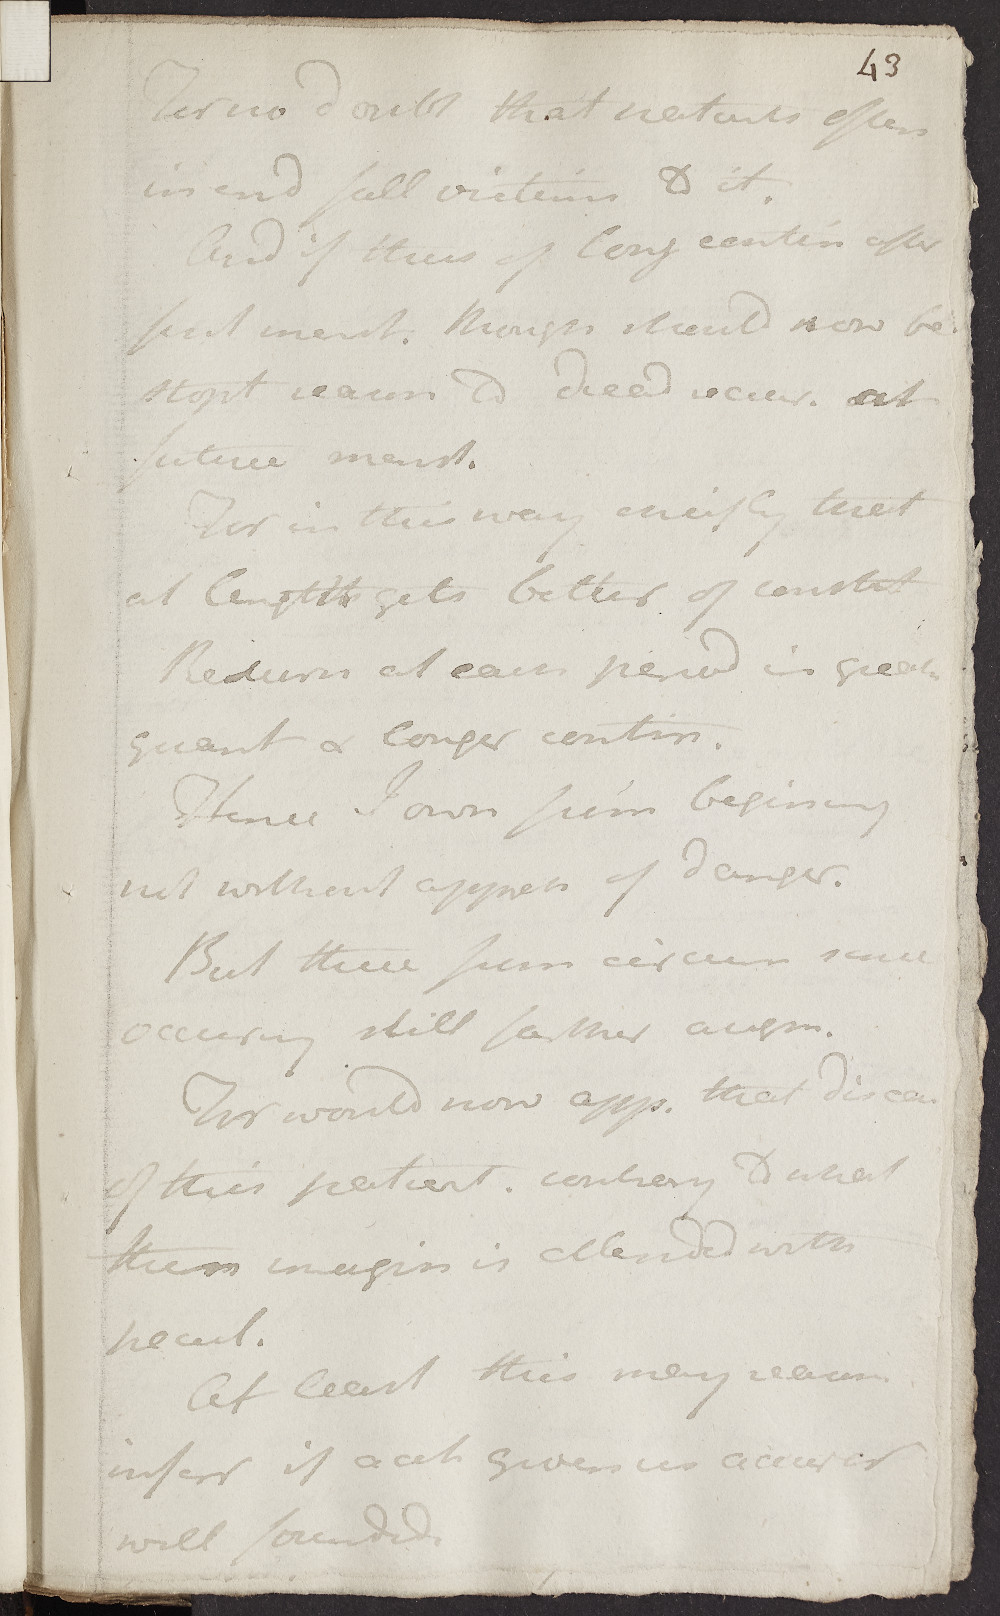 43
Ter no doubt that patients often
in end fall victims to it.
And if thus of long contin after
first menst. though should now be
stopt reason to dread recur. at
future menst.
Ter in this way chiefly that
at length gets better of constit
Returns at each period in great
quant & longer contin.
Hence I own from beginning
not without appreh of danger.
But there from circum since
occuring still farther augm.
Ter would now app. that discha
of this patient. contrary to what
them imagin is attended with
pecul.
At least this may reason
inferr if acct given us accur or
well founded.